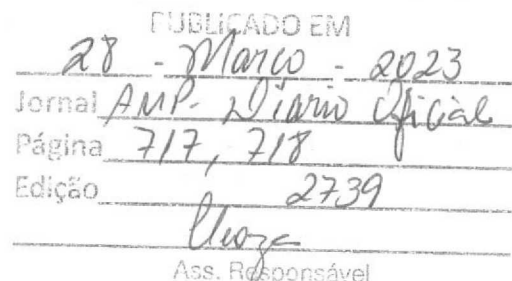 PUBLICADO EM
28 - Março - 2023
Jornal AMP - Diário Oficial
Página 717, 718
Edição 2739
Ass. Responsável